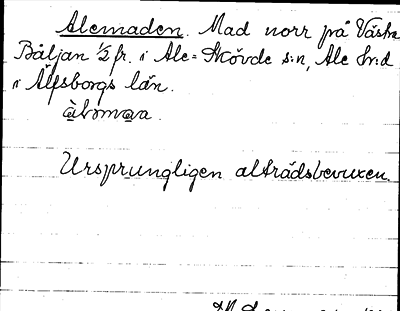 Alemaden. Mad norr på Västra
Båljan ½ fr. i Ale=Skövde s:n, Ale hr:d
i Älfsborgs län.
Ursprungligen alträdsbevuxen.